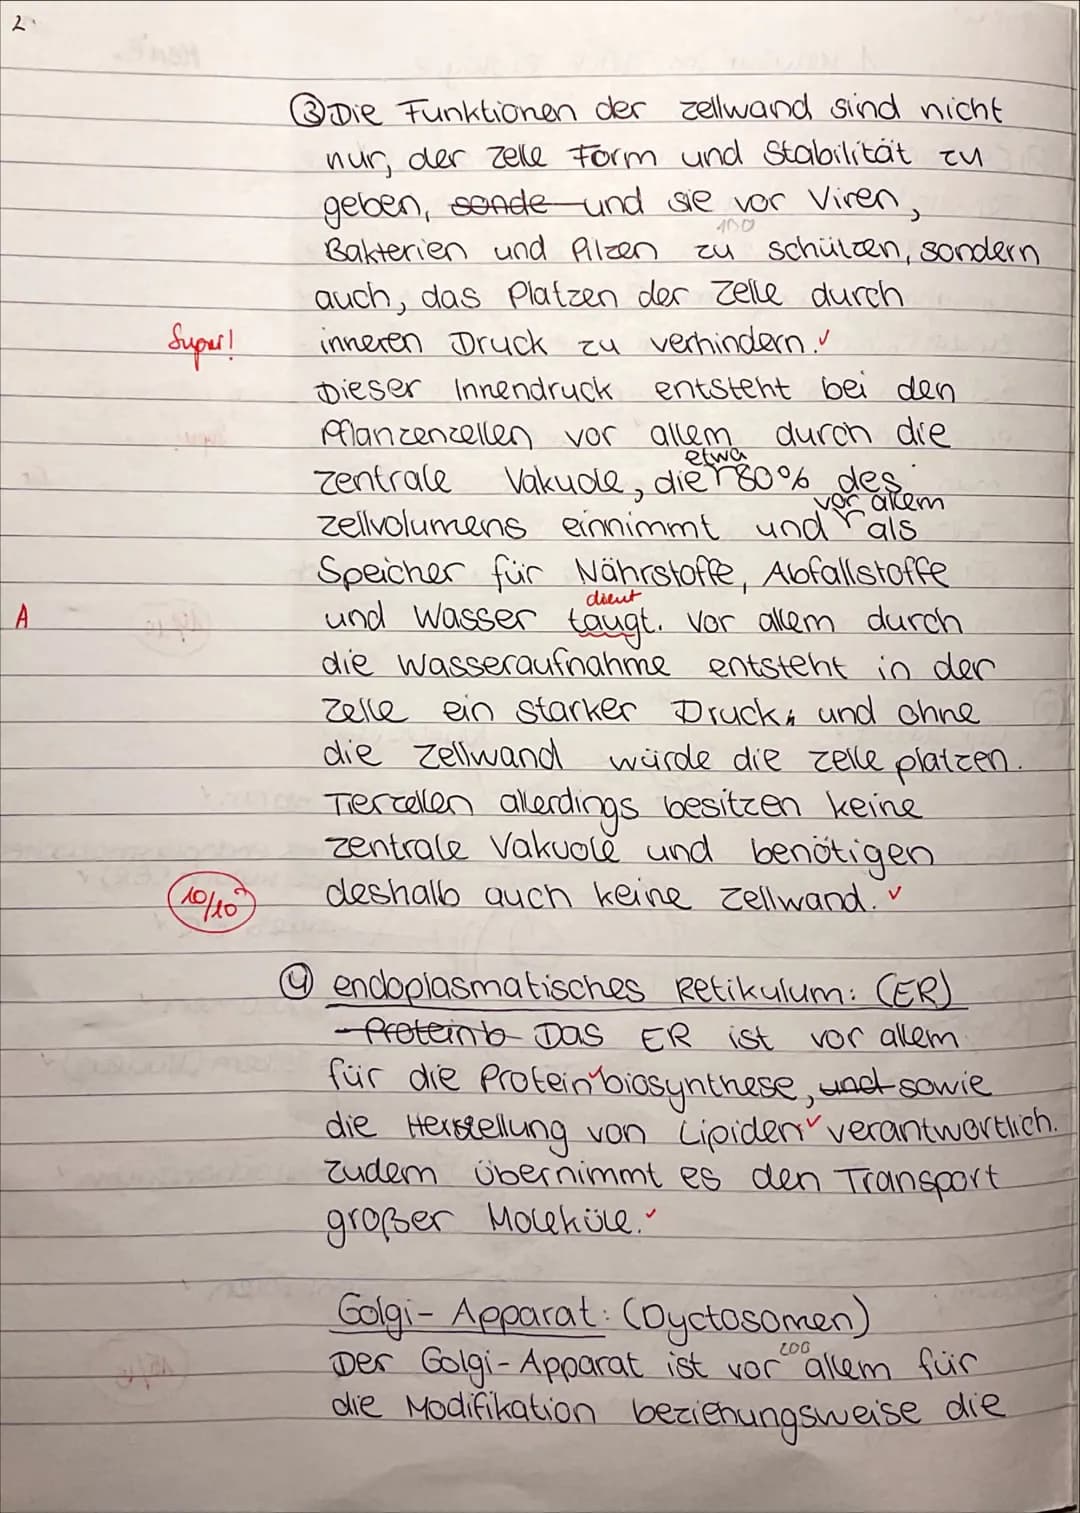 2.
③ Die Funktionen der Zellwand sind nicht
nur, der Zelle Form und Stabilität zu
geben, sonde und sie vor Viren,
100
Bakterien und Pilzen zu schützen, sondern
auch, das Platzen der Zelle durch
Super! inneren Druck zu verhindern. ✓
Dieser Innendruck entsteht bei den
Pflanzenzellen vor allem durch die
etwa
zentrale Vakuole, die 80% des
vor allem
Zellvolumens einnimmt und als
Speicher für Nährstoffe, Abfallstoffe
dient
A und Wasser taugt. Vor allem durch
die Wasseraufnahme entsteht in der
Zelle ein starker Druck, und ohne
die Zellwand würde die Zelle platzen.
Tierzellen allerdings besitzen keine
zentrale Vakuole und benötigen
10/10 deshalb auch keine Zellwand. ✓
④ endoplasmatisches Retikulum: (ER)
- Proteinb Das ER ist vor allem
für die Protein✓biosynthese, und sowie
die Herstellung von Lipiden ✓ verantwortlich.
Zudem übernimmt es den Transport
großer Moleküle. ✓
Golgi-Apparat: (Dyctosomen)
200
Der Golgi-Apparat ist vor allem für
die Modifikation beziehungsweise die